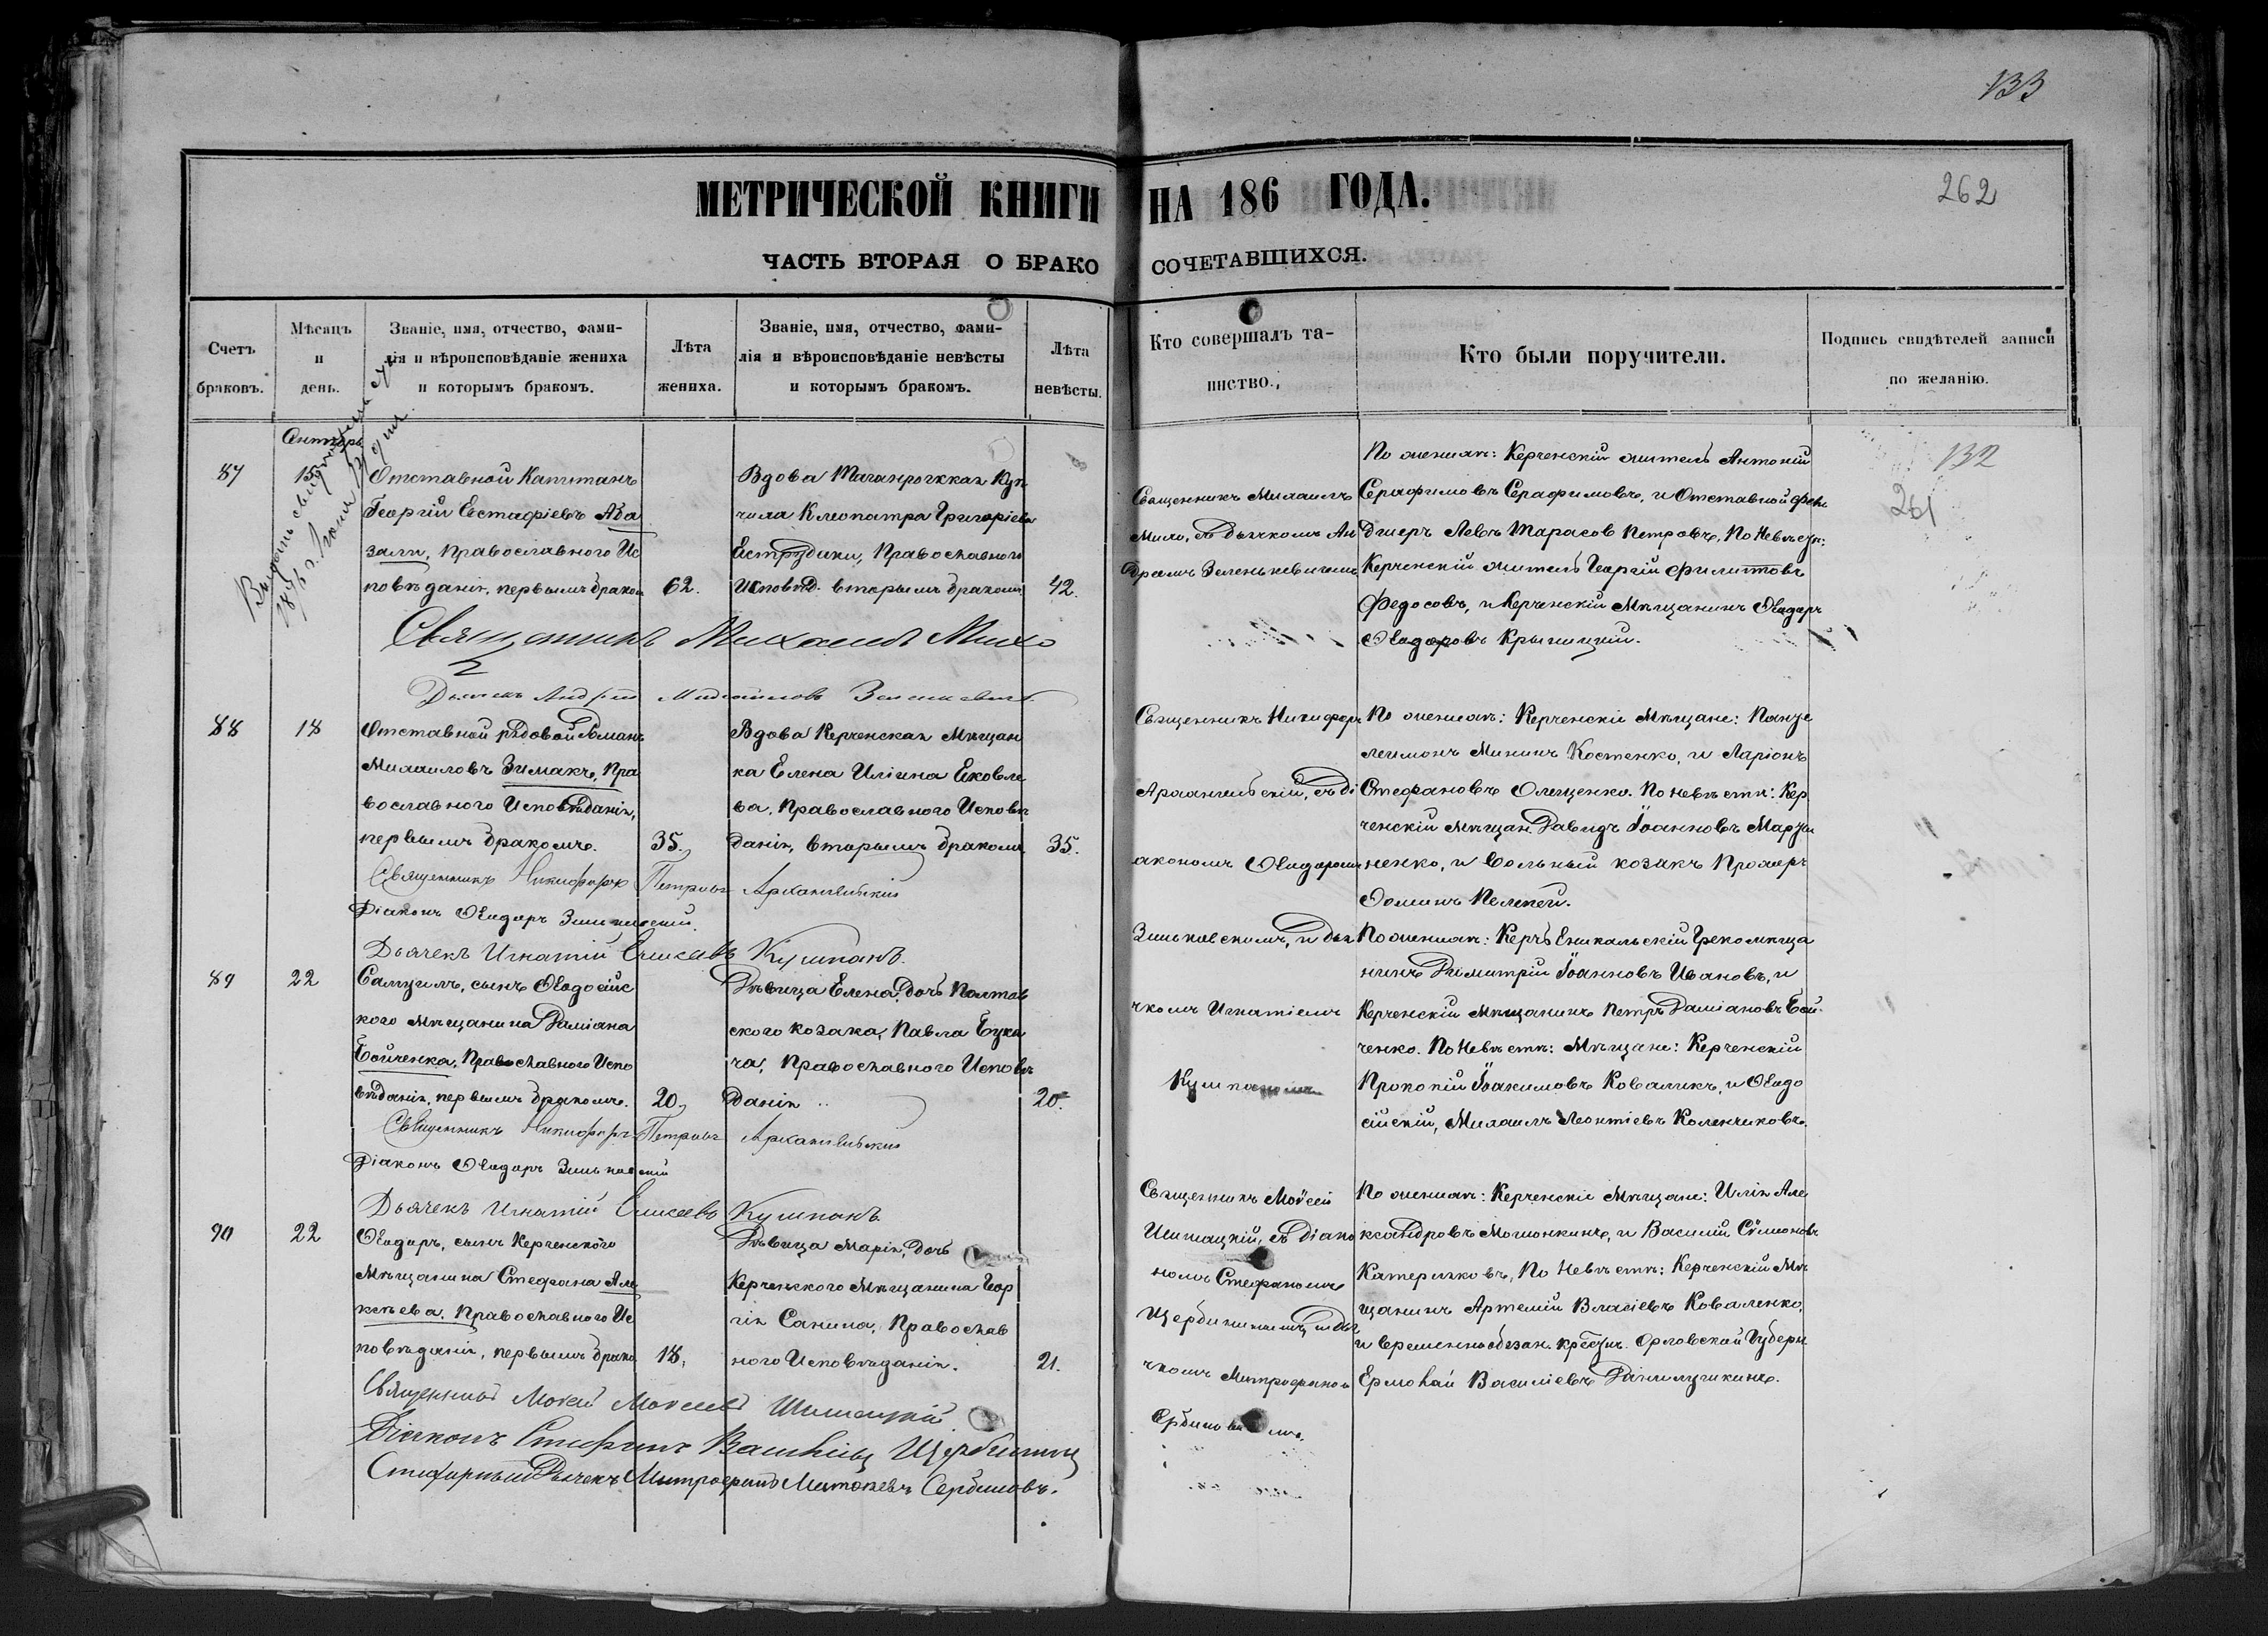 133
МЕТРИЧЕСКОЙ КНИГИ НА 186 ГОДА.
262
ЧАСТЬ ВТОРАЯ О БРАКОСОЧЕТАВШИХСЯ.
Счетъ браковъ.
Мѣсяцъ и день.
Званіе, имя, отчество, фами-
лія и вѣроисповѣданіе жениха
и которымъ бракомъ.
Лѣта жениха.
Званіе, имя, отчество, фами-
лія и вѣроисповѣданіе невѣсты
и которымъ бракомъ.
Лѣта невѣсты.
Кто совершалъ та-
инство.
Кто были поручители.
Подпись свидѣтелей записи
по желанію.
87
15
Отставной Капитанъ
Георгій Евстафіевъ Аба
зали, Православнаго Ис
повѣданія, первымъ бракомъ
62.
Вдова Таганрогская Куп
чиха Клеопатра Григоріева
Православнаго
Исповѣд. вторымъ бракомъ
42.
Священникъ Михаилъ
Михо, съ дьячкомъ Ан
дреемъ Зеленкевичемъ
По женихѣ: Керченскій житель Антоній
Серафимовъ Серафимовъ, и Отставной
Левъ Тарасов Петровъ, По Невѣстѣ:
Керченскій житель Георгій Филиповъ
Федосовъ, и Керченскій Мѣщанинъ Ѳеодоръ
Ѳеодоровъ Крыницкій.
132
261
Священникъ Михаилъ Михо
Дьячекъ Андрей Михайловъ Зеленкевичъ
88
18
Отставной рядовой Романъ
Михаиловъ Зимакъ, Пра
вославнаго Исповѣданія,
первымъ бракомъ.
35.
Вдова Керченская Мѣщан
ка Елена Иліина Яковле
ва, Православнаго Исповѣ
данія, вторымъ бракомъ
35.
Священникъ Никифоръ
Архангельскій, съ ді
акономъ Ѳеодоромъ
Зиньковскимъ, и дья
чкомъ Игнатіемъ
Кушпаномъ
По женихѣ: Керченскіе Мѣщане: Панте
леимонъ Мининъ Костенко, и Ларіонъ
Стефановъ Олещенко. По невѣстѣ: Кер
ченскій мѣщан. Давидъ Іоанновъ
ненко, и вольный козакъ Прохоръ
Ѳоминъ
Священникъ Никифоръ Петровъ Архангельскій
Діаконъ Ѳеодоръ Зиньковскій.
Дьячекъ Игнатій Елисеевъ Кушпанъ.
89
22
Самуилъ, сынъ Ѳеодосійс
кого мѣщанина Даміана
Бойченка, Православнаго Испо
вѣданія, первымъ бракомъ.
20.
Дѣвица Елена, дочь Полтав
ского козака, Павла
Православнаго Исповѣ
данія
20.
По женихѣ: Керчь Еникальскій Грекомѣща
нинъ Димитрій Іоанновъ Ивановъ, и
Керченскій Мѣщанинъ Петръ Даміановъ Бой
ченко. По Невѣстѣ: Мѣщане: Керченскій
Прокопій Іоакимовъ Коваликъ, и Ѳеодо
сійскій, Михаилъ Леонтіевъ Коленчиковъ.
Священникъ Никифоръ Петровъ Архангельскій
Діаконъ Ѳеодоръ Зиньковскій
Дьячекъ Игнатій Елисеевъ Кушпанъ.
90
22
Ѳеодоръ, сынъ Керченского
Мѣщанина Стефана Але
ксѣева. Православнаго Ис
повѣданія, первымъ брако
18.
Дѣвица Марія, дочь
Керченского Мѣщанина Геор
гія Санина, Православ
ного Исповѣданія.
21.
Священникъ Моѵсей
Шишацкій, съ діако
номъ Стефаномъ
чкомъ Митрофаном
По женихѣ: Керченскіе Мѣщане: Илія Але
ксандровъ Мошонкинъ, и Василій Сѵмеоновъ
По Невѣстѣ: Керченскій Мѣ
щанинъ Артемій Власіевъ Коваленко,
и временнообязан. крестян. Орловской Губерн
Ермолай Василіевъ
Священникъ Моисей Моисеевъ Шишацкій
Діаконъ Стефанъ
Дьячекъ Митрофанъ Сербиновъ.